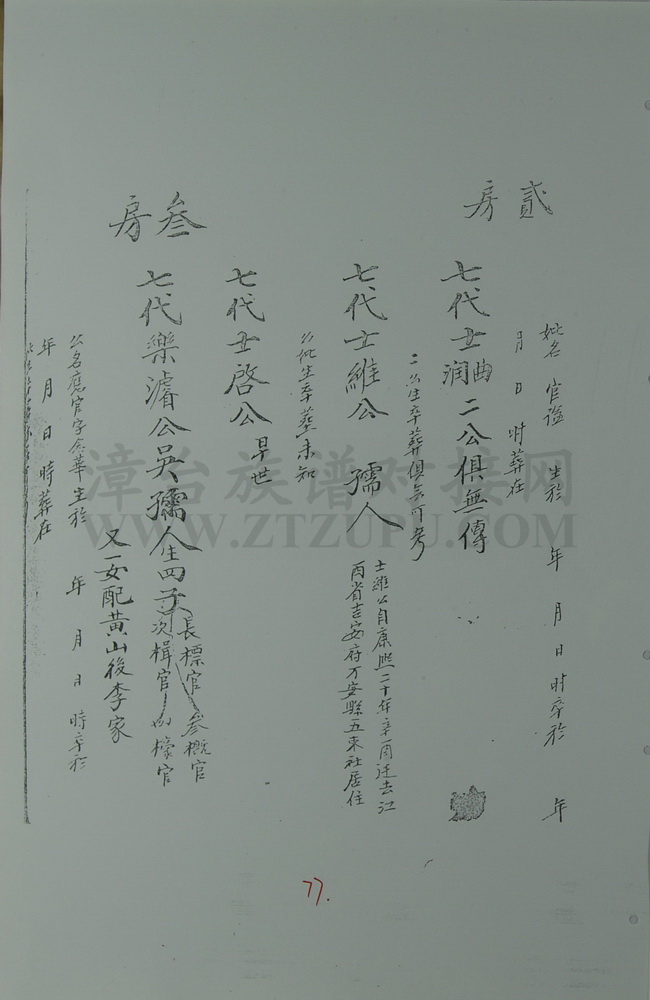 妣名 官謚 生於 年 月 日 時卒於 年
月 日 時葬在
貳房
七代士曲润二公俱無傳
二公生卒葬俱無可考
七代士維公 孺人
士維公自康熙二十年辛酉迁去江
西省吉安府万安縣五来社居住
公妣生卒葬未知
七代士啓公早世
叁房
七代樂濬公吳孺人生四子
長標官 叁概官
次楫官 四檺官
又一女配黄山後李家
公名應官字 華生於 年 月 日 時卒於
年 月 日 時葬在
漳台族谱对接网
WWW.ZTZUPU.COM
77.